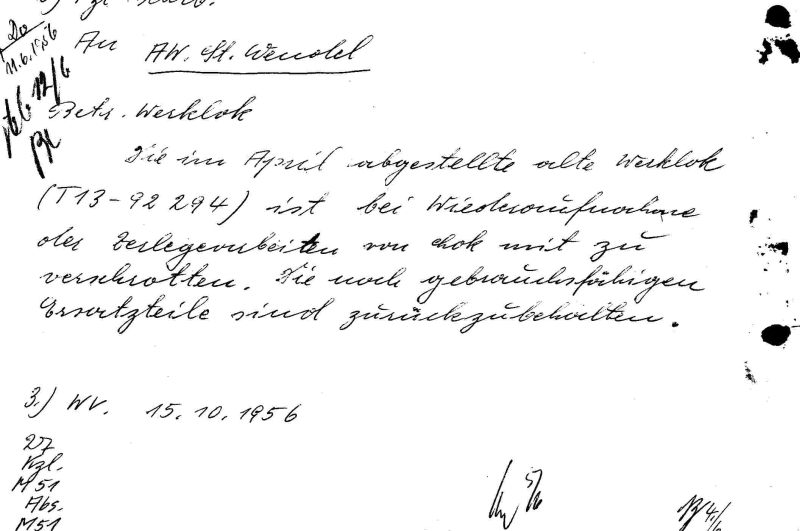 An AW. St. Wendel
11.6.1956
Betr. Werklok
Die im April abgestellte alte Werklok
(T13-92 294) ist bei Wiederaufnahme
der Zerlegearbeiten von Lok mit zu
verschrotten. Die noch gebrauchsfähigen
Ersatzteile sind zurückzubehalten.
3.) WV. 15.10.1956
Kzl.
M51
Abs.
M51